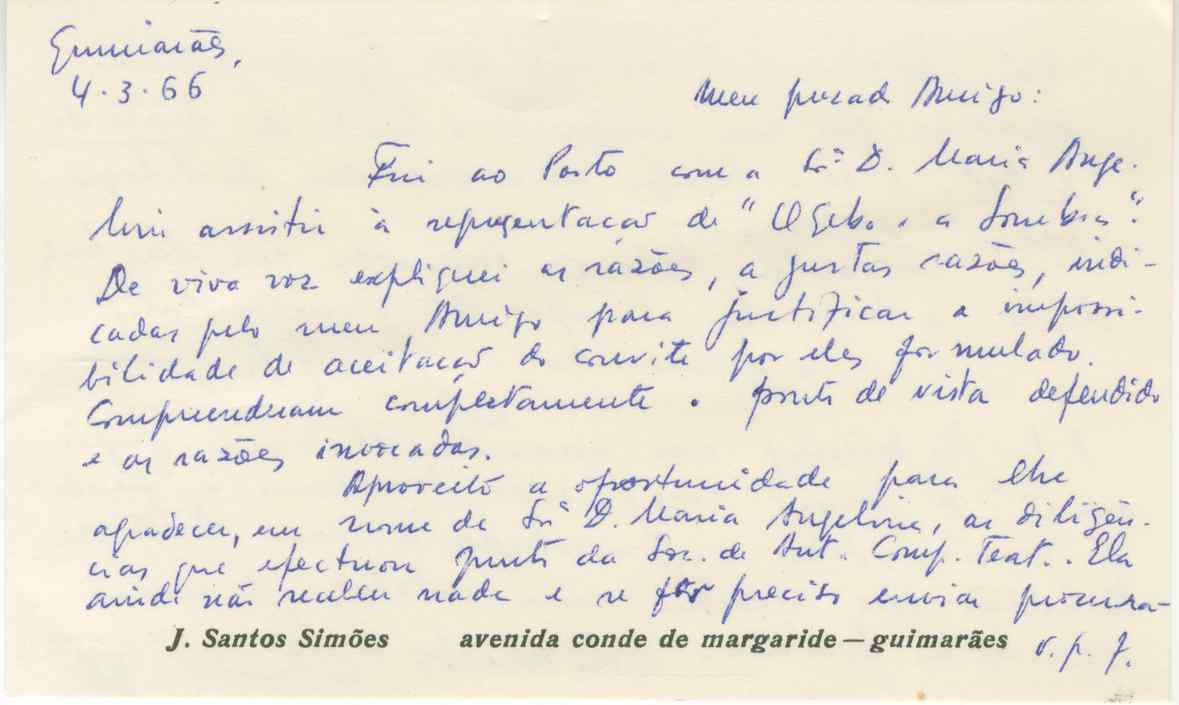 Guimarães,
4.3.66
Meu prezado Amigo:
Fui ao Porto com a Srª D. Maria Ange-
lina assistir à representação de "O Gebo e a Sombra".
De viva voz expliquei as razões, as justas razões, indi-
cadas pelo meu Amigo para justificar a impossi-
bilidade de aceitação do convite por eles formulado.
Compreenderam completamente o ponto de vista defendido
e as razões invocadas.
Aproveito a oportunidade para lhe
agradecer, em nome da Srª D. Maria Angelina, as diligên-
cias que efectuou junto da Soc. de Aut. Comp. Teat.. Ela
ainda não recebeu nada e se for preciso enviar procura-
v. p. f.
J. Santos Simões avenida conde de margaride — guimarães